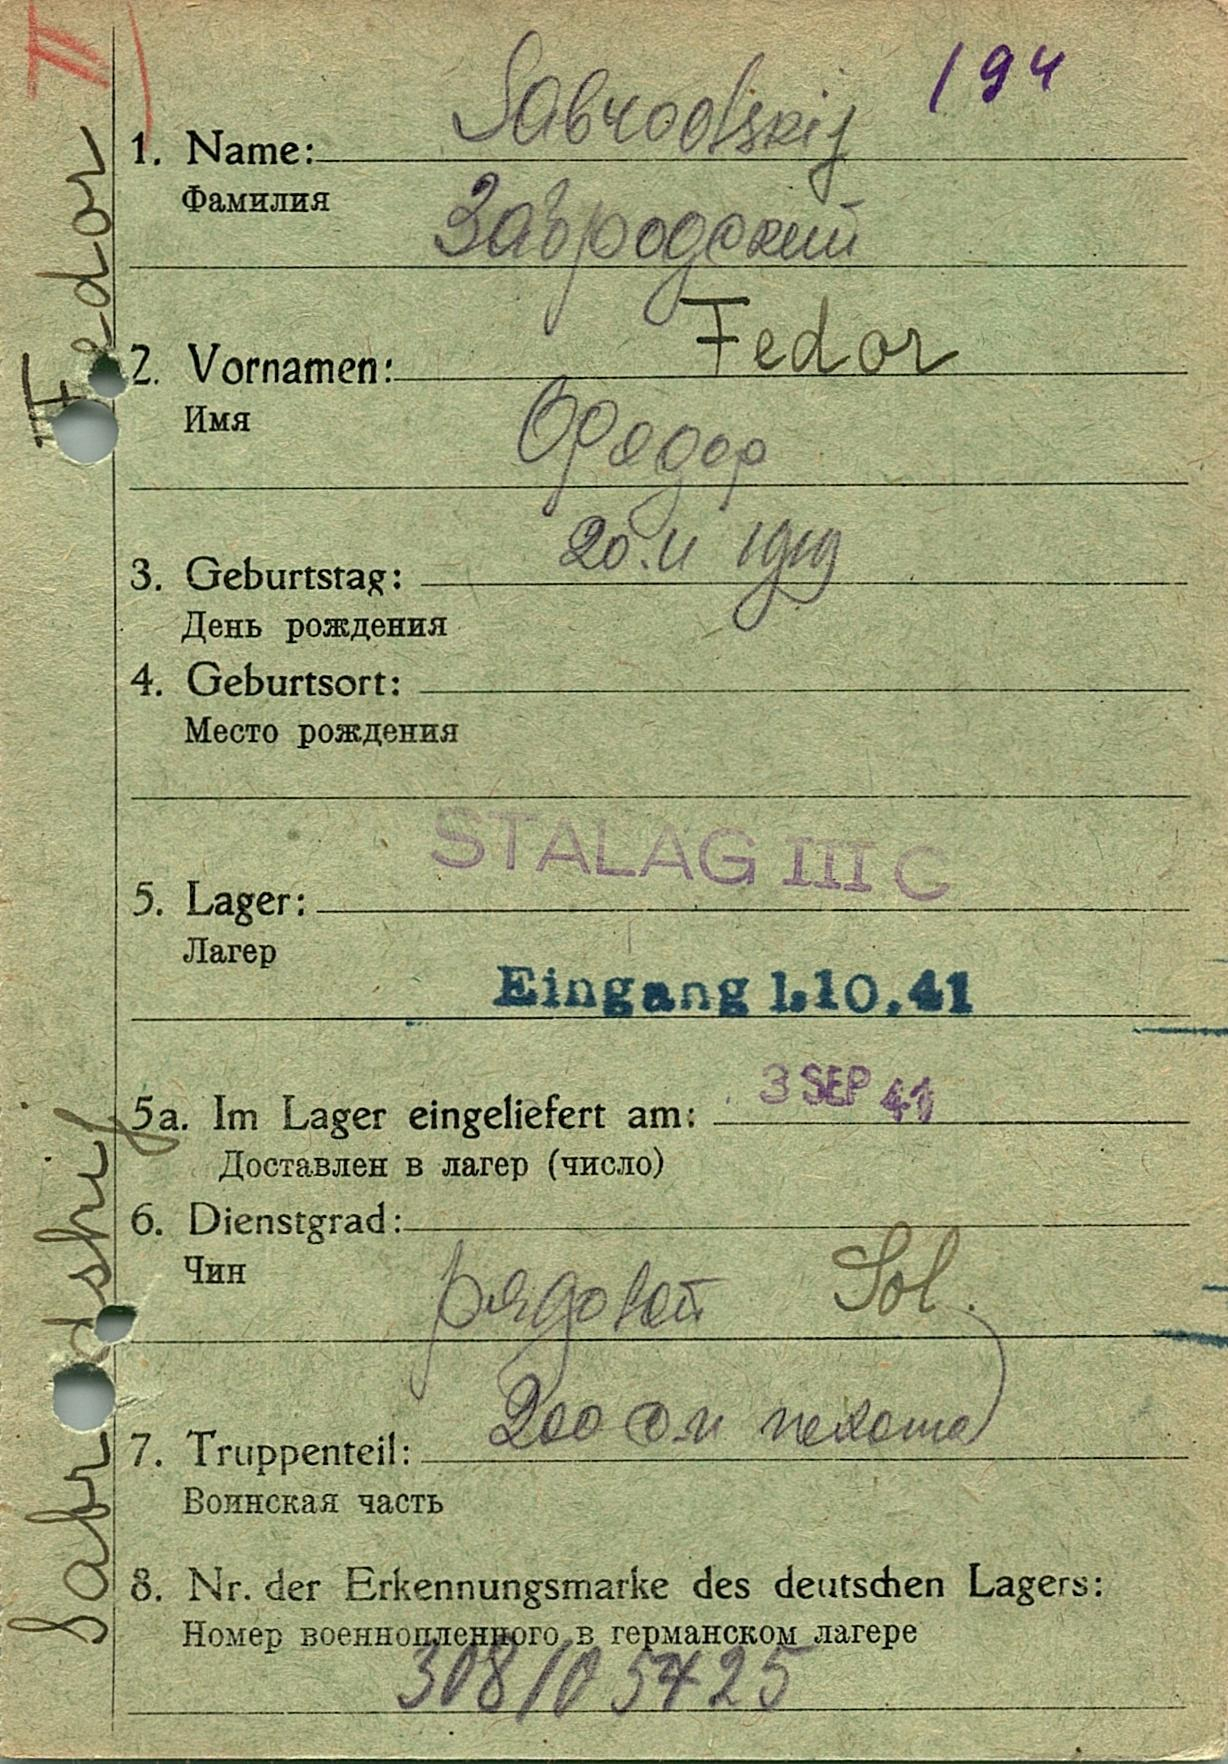 II
194
Sabrodskij
1. Name:
Фамилия
Забродский
Fedor
2. Vornamen:
Имя
Фядор
20.II 1919
3. Geburtstag:
День рождения
4. Geburtsort:
Место рождения
STALAG III C
5. Lager:
Лагер
Eingang 1.10.41
3 SEP 41
5a. Im Lager eingeliefert am:
Доставлен в лагер (число)
6. Dienstgrad:
Чин
рядовой Sol.
200 пехота
7. Truppenteil:
Воинская часть
8. Nr. der Erkennungsmarke des deutschen Lagers:
Номер военнопленного в германском лагере
308/05425
Sabrodskij Fedor